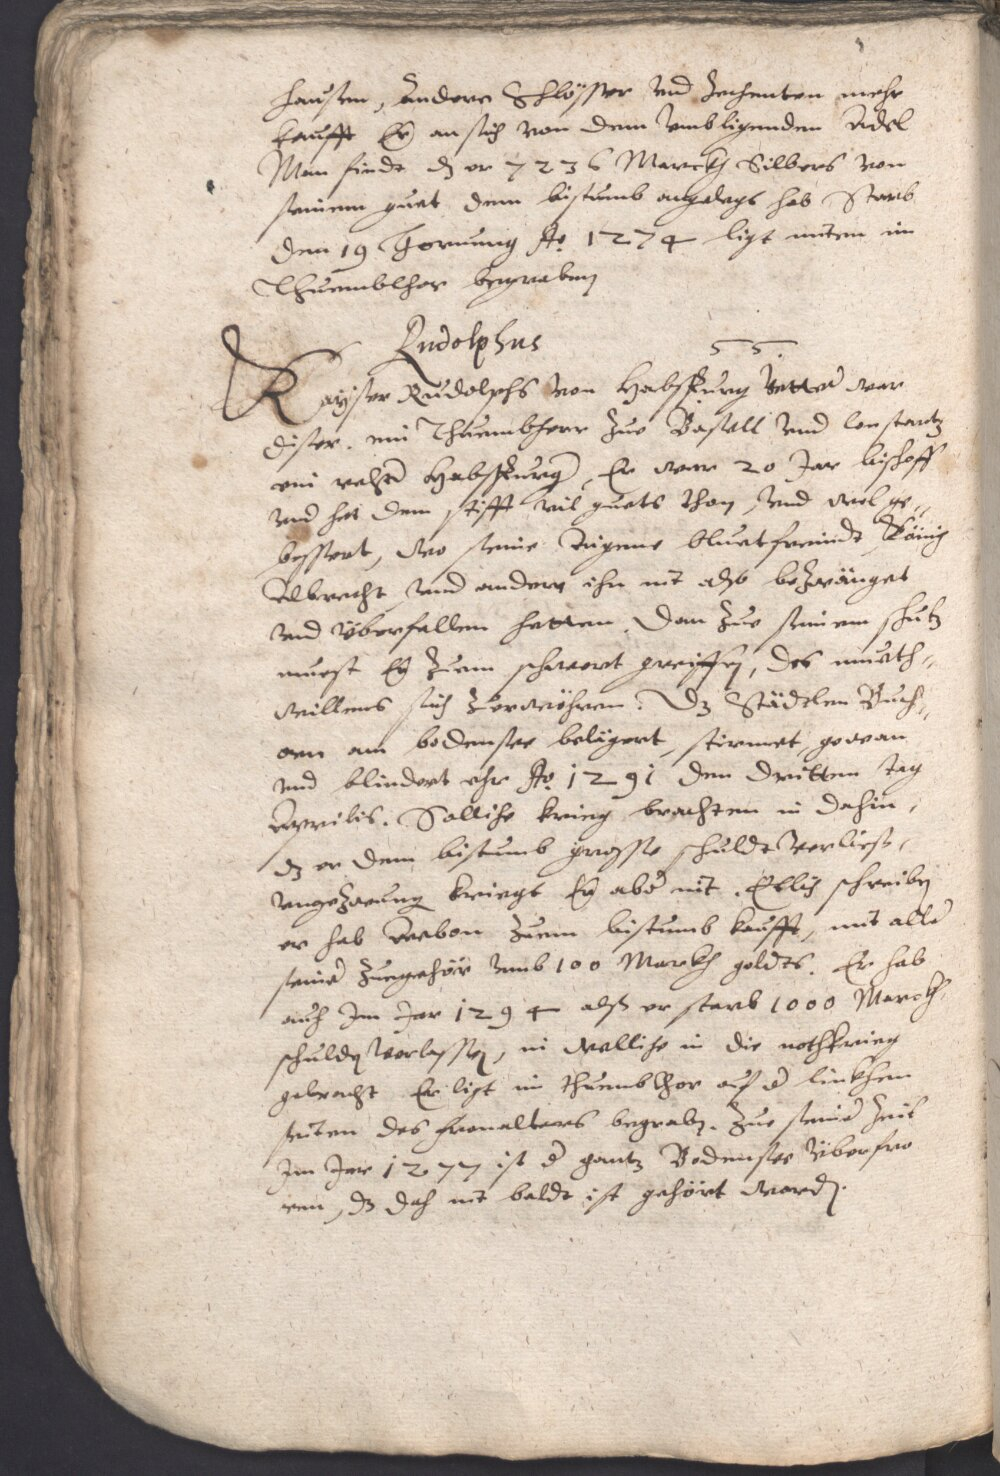 hausen, Andere Schlösser und Zechenten mehr
kaufft Er an sich von dem umbligenden Adel
Man findt dz er 7236 Marckh Silbers von
seinem guet dem bistumb angelegt hab Starb
den 19 Hornung Ao. 1274 ligt miten im
Thuembchor begraben
Rudolphus 55.
Kayser Rudolphs von Habspurg vetter war
diser. ein Thuembherr zue Basell und Constantz
ein rechter Habspurger, Er war 20 Jar bischoff
und het dem stifft vil guets thon, und wol ge„
bessert, wo seine eigene bluetfreindt, König
Albrecht und andere ihn nit also bezwänget
und überfallen hetten. Dan zue seinem schutz
muest Er zuem schwert greiffen, des muoth„
willens sich zuerwöhren. Dz Städtlen Buch„
oren am bodensee belägert, stirmet, gewan
und blindert ehr Ao. 1291 den dritten tag
Aprilis. Solliche krieg brachten in dahin,
dz er dem bistumb grosse schuldt verliess,
ungezwung kriegt Er aber nit. Etlich schreiben
er hab Arbon zuem bistumb kaufft, mit aller
seiner zuegehör umb 100 Markh goldts. Er hab
auch Im Jar 1294 alss er starb 1000 Marckh
schulden verlassen, in welliche in die nothkrieg
gebracht Er ligt im thuembchor auf der linkhen
seiten des fronaltars begraben. Zue seiner zeit
Im Jar 1277 ist der gantz Bodensee überfro
ren, dz doch nit baldt ist gehört worden.